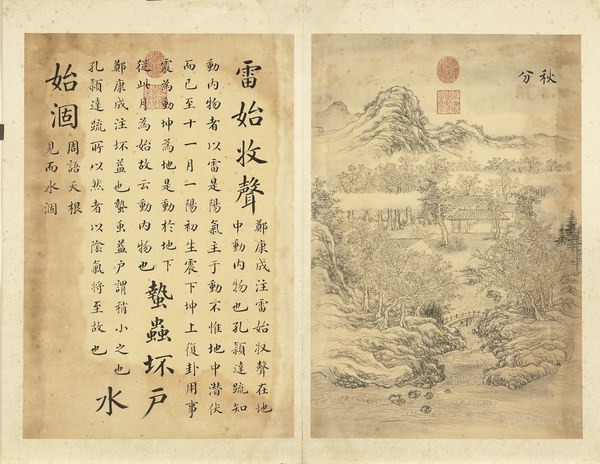 秋分
雷始收聲
鄭康成注雷始收聲在地
中動內物也孔穎達疏知
動內物者以雷是陽氣主于動不惟地中潛伏
而已至十一月一陽初生震下坤上復卦用事
震為動坤為地是動於地下
從此月為始故云動內物也
蟄蟲坏戶
鄭康成注坏益也蟄虫益戶謂稍小之也
孔穎達疏所以然者以陰氣將至故也
水
始涸
周語天根
見而水涸